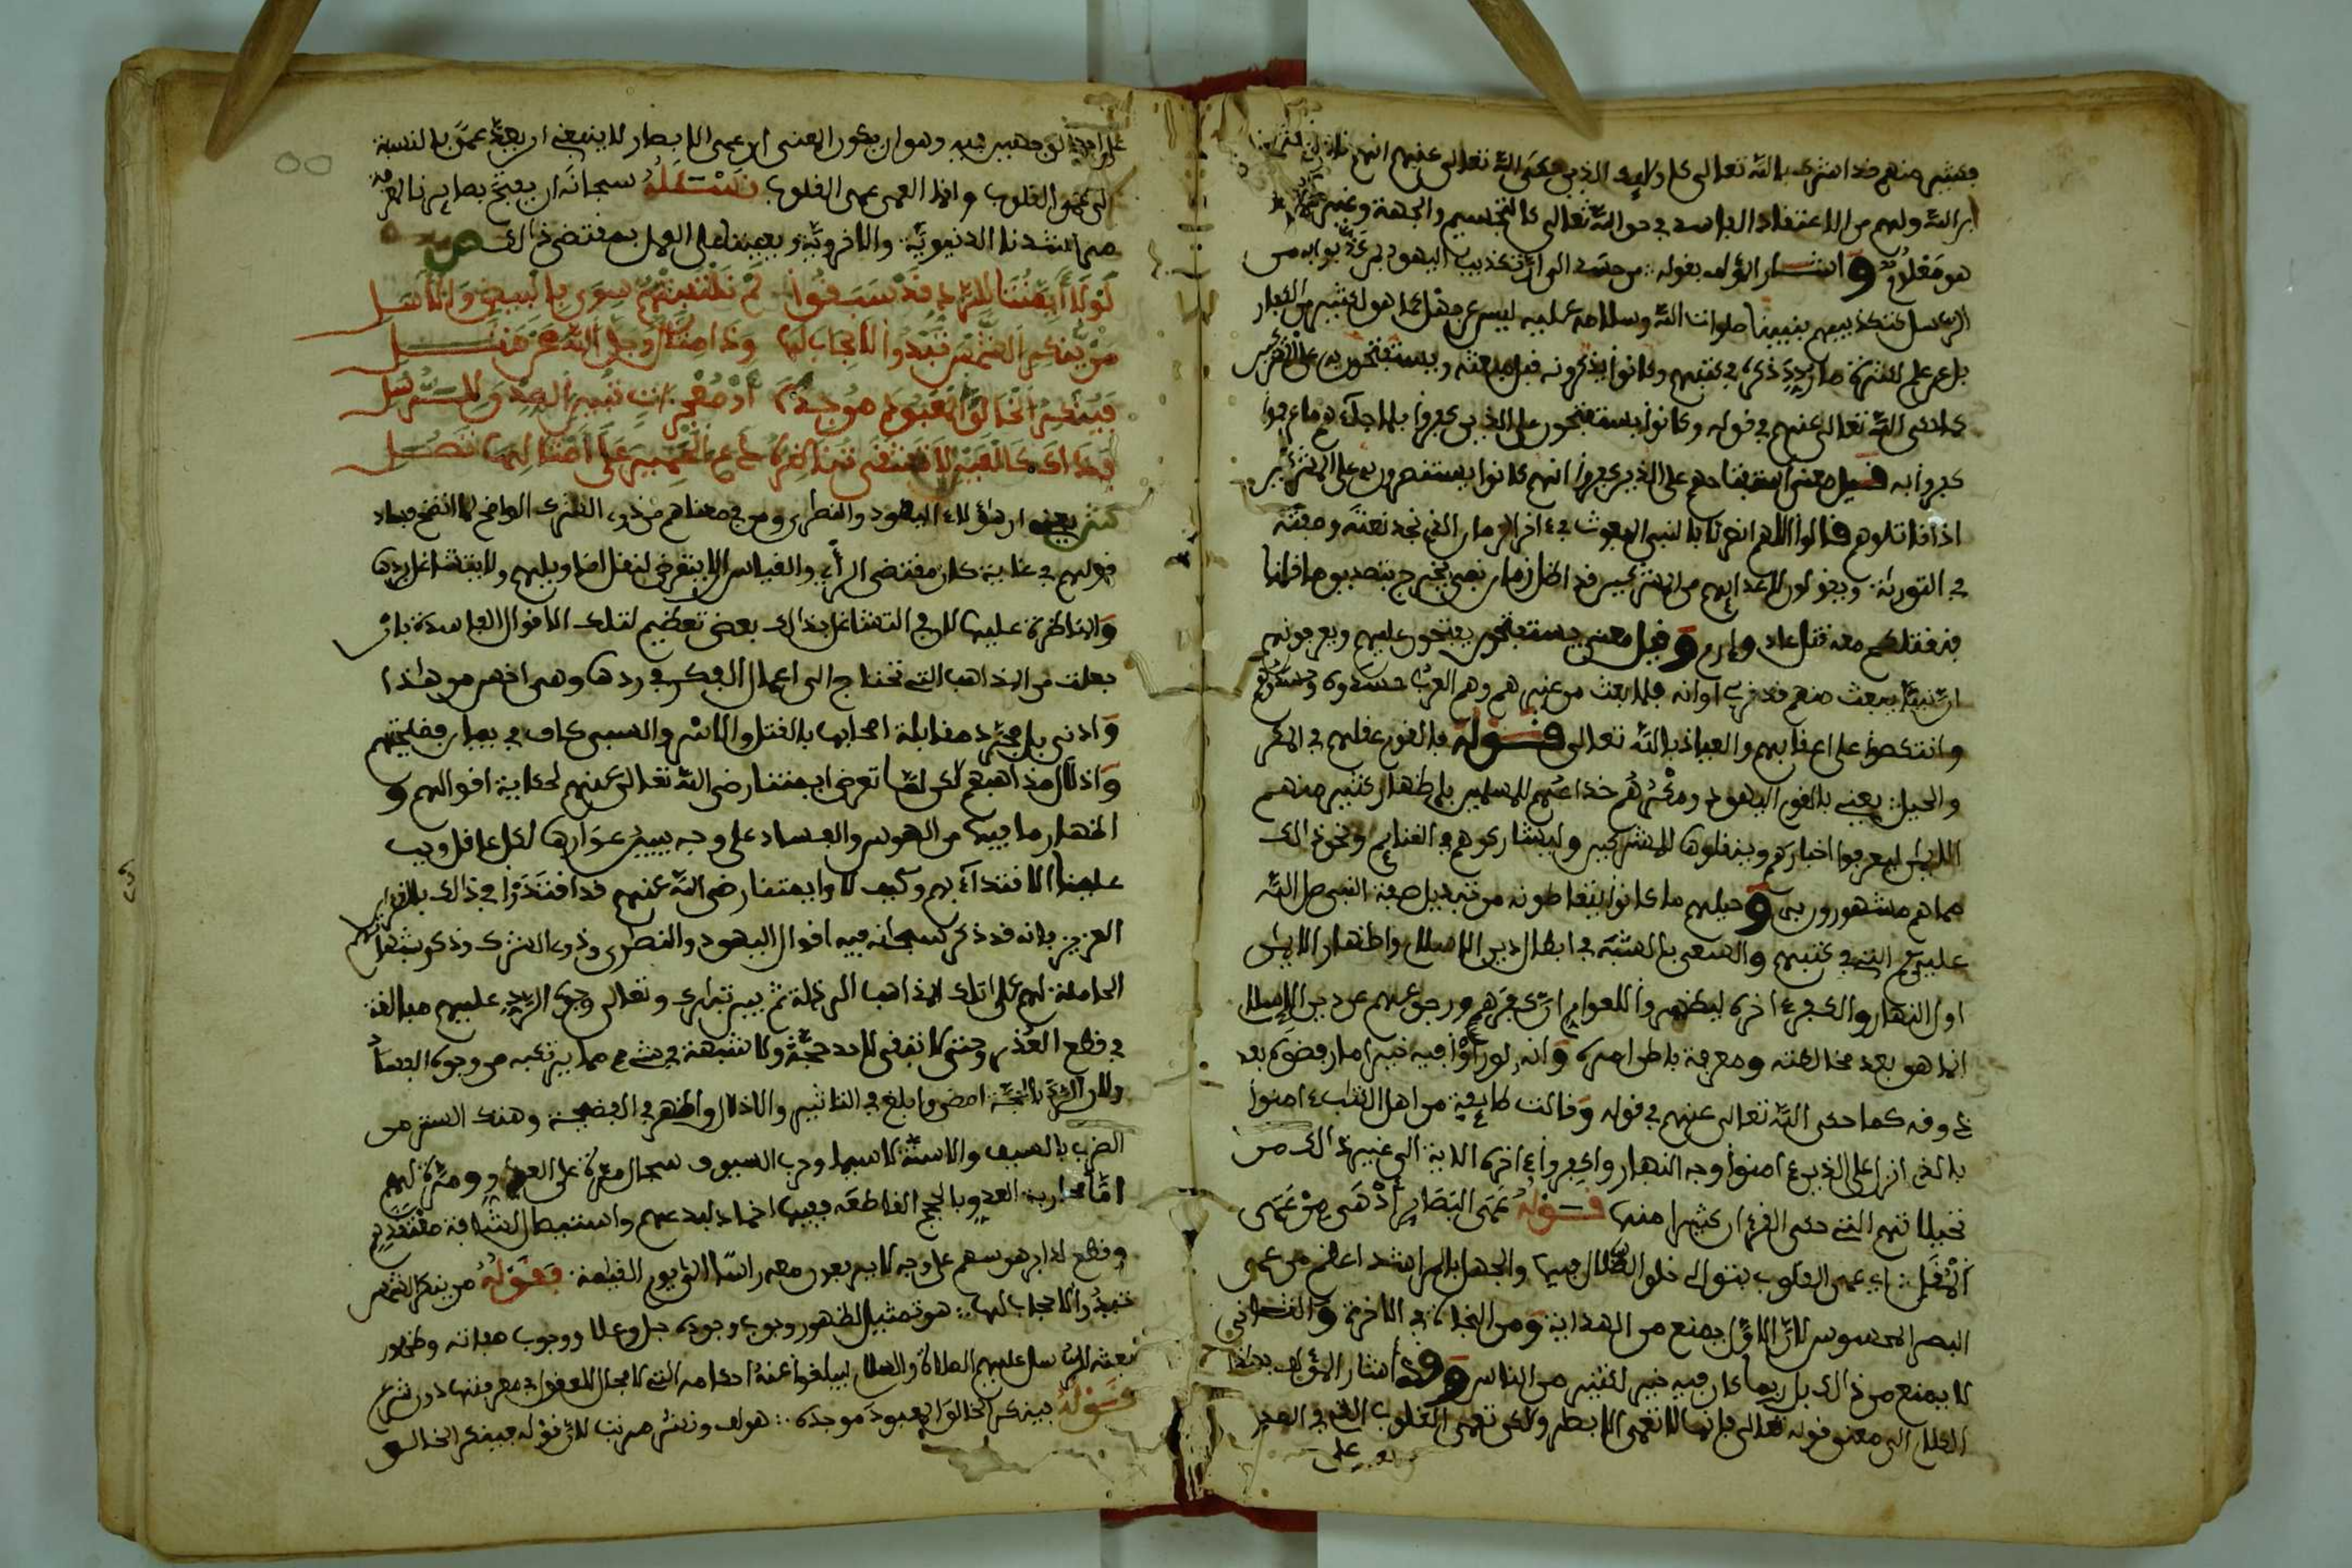 فكثير منهم قد اشرك بالله تعالى كاولايك الذين حكى الله تعالى عنهم انهم
ابن الله ولهم من الاعتقاد الفاسد في حق الله تعالى كالتجسيم والجهة وغير
هو معلوم واشار المؤلف بقوله من حسد الى ان تكذيب اليهود من كذبوا به من
الرسل كتكذيبهم بنبينا صلوات الله وسلامه عليه ليس عن جهل كما هو لكثير من الكفار
بل عن علم لكثرة ما ذكره في كتبهم وكانوا يذكرونه قبل مبعثه ويستفتحون به على المشركين
كما حكى الله تعالى عنهم في قوله وكانوا يستفتحون على الذين كفروا فلما جاءهم ما عرفوا
كفروا به قيل معنى استفتاحهم على الذين كفروا انهم كانوا يستنصرون به على المشركين
اذا قاتلوهم قالوا اللهم انصرنا بالنبي المبعوث في ءاخر الزمان الذي نجد نعته وصفته
في التورية ويقولون لاعدايهم من المشركين قد اظل زمان نبي يخرج بتصديق ما قلنا
فنقتلكم معه قتل عاد وارم وقيل معنى يستفتحون يفتحون عليهم ويعرفونهم
ان نبيا يبعث منهم قد قرب اوانه فلما بعث من غيرهم وهم العرب حسدوه
وانتكصوا على اعقابهم والعياذ بالله تعالى قوله فالقوم عقلهم في المكر
والحيل يعني بالقوم اليهود ومكرهم خداعهم للمسلمين باظهار كثير منهم
الايمان ليعرفوا اخبارهم وينقلوها للمشركين وليشاركوهم في الغنايم ونحو ذالك
مما هم مشهورون به وحيلهم ما كانوا يتعاطونه من تبديل صفة النبي صلى الله
عليه وسلم التي في كتبهم والسعي بالشبه في ابطال دين الاسلام واظهار الايمان
اول النهار والكفر ءاخره ليظهروا للعوام ان كفرهم ورجوعهم عن دين الاسلام
انما هو بعد مخالطته ومعرفة باطن امره وانه لو راوا فيه خيرا ما رفضوه بعد
ذوقه كما حكى الله تعالى عنهم في قوله وقالت طايفة من اهل الكتب ءامنوا
بالذي انزل على الذين ءامنوا وجه النهار واكفروا ءاخره الاية الى غير ذالك من
تخيلاتهم التي حكى القرءان كثيرا منها قوله عمى البصاير ادهى من عمى
المقل اي عمى القلوب بتوالي خلق الضلال فيها والجهل بالمراشد اعظم من عمى
البصر المحسوس لان الاول يمنع من الهداية ومن النجاة في الاخرة والثاني
لا يمنع من ذالك بل ربما كان فيه خير لكثير من الناس وقد اشار المؤلف بهذا
الكلام الى معنى قوله تعالى فانها لا تعمى الابصر ولكن تعمى القلوب التي في الصدور
على
على احد الوجهين فيه وهو ان يكون المعنى ان عمى الابصار لا ينبغي ان يعد عمى بالنسبة
الى عمى القلوب وانما العمى عمى القلوب نسئله سبحانه ان يفتح بصايرنا لمعرفة
مراشدنا الدنيوية والاخروية ويعيننا على العمل بمقتضى ذالك ص
لولا ايمتنا للرد قد سبقوا لم نلتفتهم سوى بالبيض والاسل
من ينكر الشمس تبدوا لا حجاب لها وذا مثال وجل الله عن مثل
فينكر الخالق المعبود موجده او معجزات تبين الصدق للرسل
ش يعني ان هؤلاء اليهود والنصرى ومن في معناهم من ذوي الشرك الواضح لما اتضح فساد
قولهم في غاية كان مقتضى الراي والقياس الا يتعرض لنقل اقاويلهم ولا يتشاغل بردها
والمناظرة عليها لان في التشاغل بذالك بعض تعظيم لتلك الاقوال الفاسدة بان
جعلت من المذاهب التي تحتاج الى اعمال الفكر في ردها وهي اخس من هاذا
وادنى بل مجرد مقابلة اصحابها بالقتل والاسر والسبي كاف في بيان فضيحتهم
واذلال مذاهبهم لكن لما تعرض ايمتنا رضي الله تعالى عنهم لحكاية اقوالهم و
اظهار ما فيها من الهوس والفساد على وجه يبين عوارها لكل عاقل وجب
علينا الاقتداء بهم وكيف لا وايمتنا رضي الله عنهم قد اقتدوا في ذالك بالقرءان
العزيز فانه قد ذكر سبحانه فيه اقوال اليهود والنصرى وذوي الشرك وذكر شبههم
الحاملة لهم على تلك المذاهب الباطلة ثم بين تبارك وتعالى وجوه الرد عليهم مبالغة
في قطع العذر وحتى لا تبقى لاحد حجة ولا شبهة في شيء مما يرتكبه من وجوه الفساد
ولان الرد بالحجة امضى وابلغ في التاثير والاذلال واظهر في الفضيحة وهتك الستر من
الضرب بالسيف والاسنة لا سيما وحرب السيوف سجال مرة على العدو ومرة لهم
اما محاربة العدو بالحجج القاطعة ففيها اخماد لبدعهم واستيصال
وقطع لدابر هوسهم على وجه لا يرفعون معه راسا الى يوم القيمة فقوله من ينكر الشمس
تبدوا لا حجاب لها هو تمثيل لظهور وجوب وجوده جل وعلا ووجوب صفاته وظهور
بعثه للرسل عليهم الصلاة والسلام ليبلغوا عنه احكامه التي لا مجال للعقول في معرفتها دون شرع
قوله فينكر الخالق المعبود موجده هو لف ونشر مرتب لان قوله فينكر الخالق